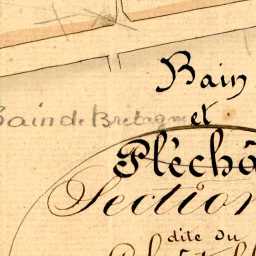 Bain
Bain de Bretagne
et
Pléchâ
Section
dite du